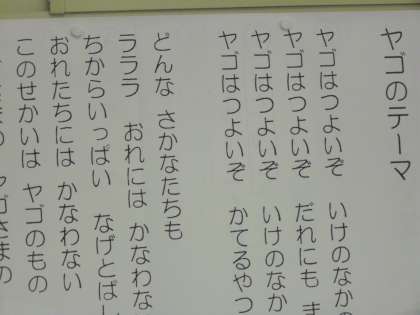 ヤゴのテーマ
ヤゴはつよいぞ いけのなかの
ヤゴはつよいぞ だれにも ま
ヤゴはつよいぞ いけのなか
ヤゴはつよいぞ かてるやつ
どんな さかなたちも
ラララ おれには かなわな
ちからいっぱい なげとばし
おれたちには かなわない
このせかいは ヤゴのもの
ヤゴさまの